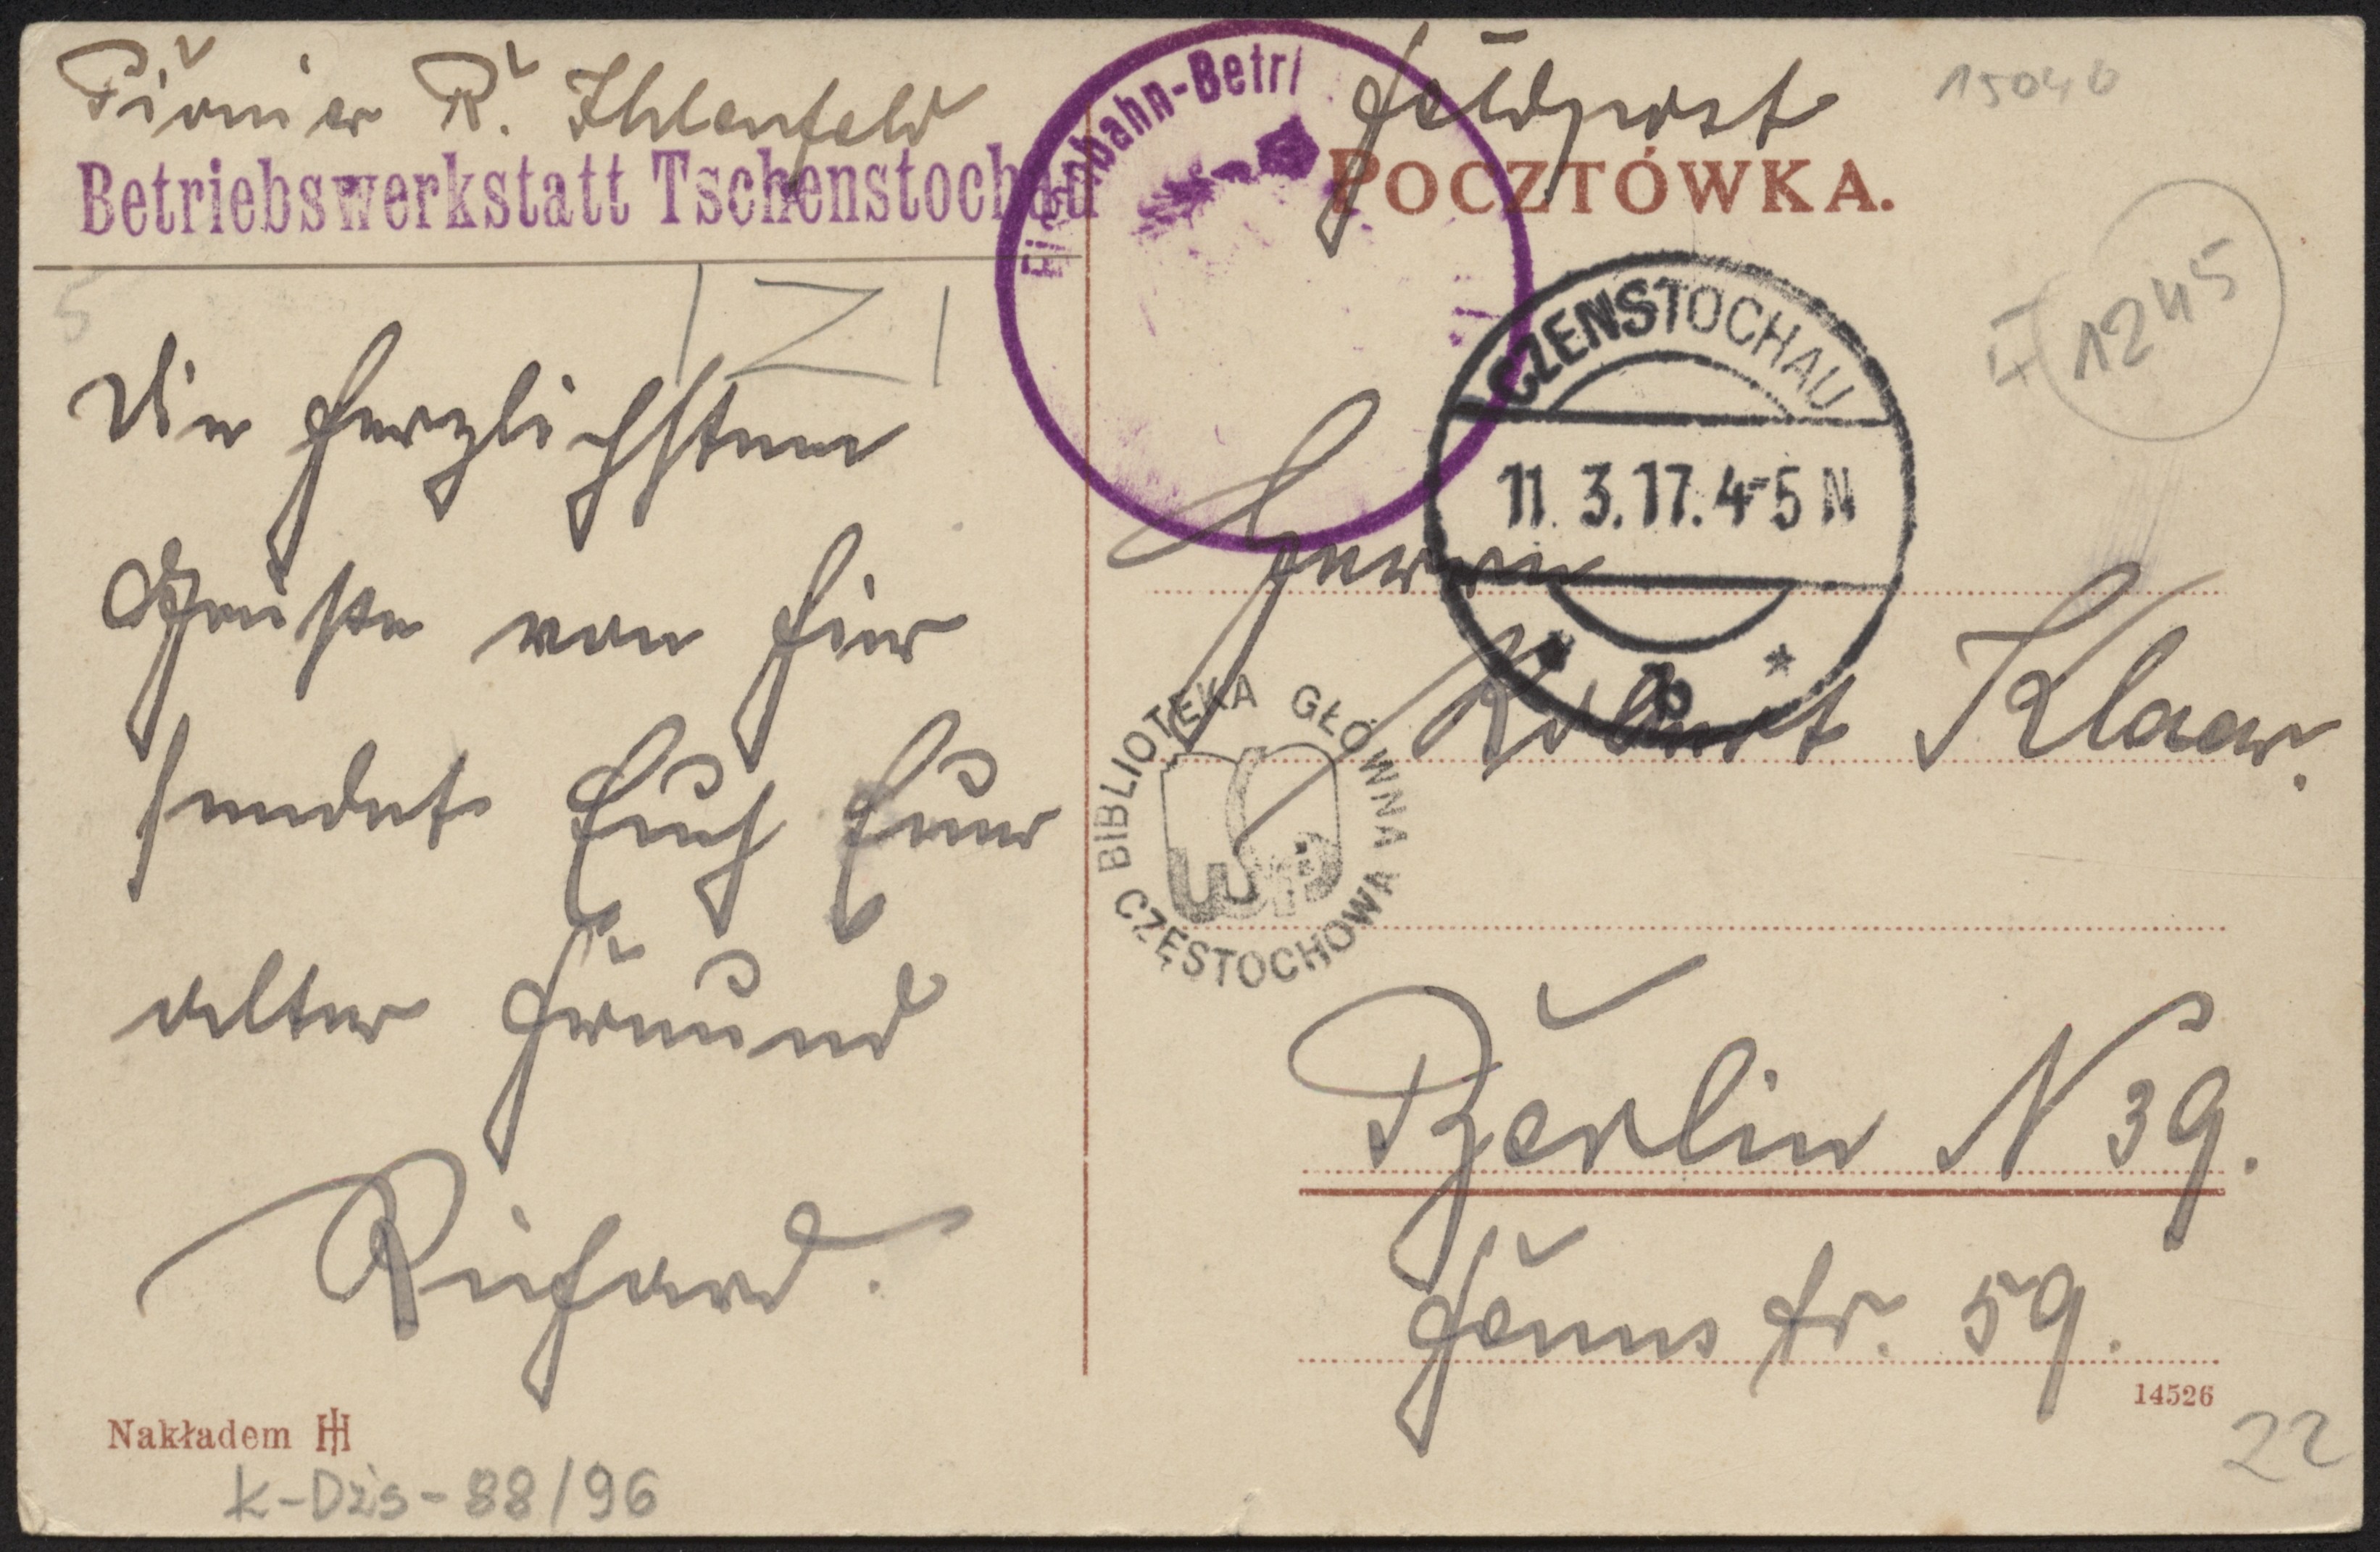 Pionier R. Ihlenfeld
Betriebswerkstatt Tschenstochau
Die herzlichsten
Grüße von hier
sendet Euch Euer
alter Freund
Richard.
Nakładem
K-Dźs-88/96
Eisenbahn-Betri
Feldpost
15040
POCZTÓWKA.
1245
CZENSTOCHAU
11.3.17.4-5 N
* b *
Herrn
Robert Klaar.
BIBLIOTEKA GŁÓWNA
WSP
CZĘSTOCHOWA
Berlin N 39.
Fennstr. 59.
14526
22